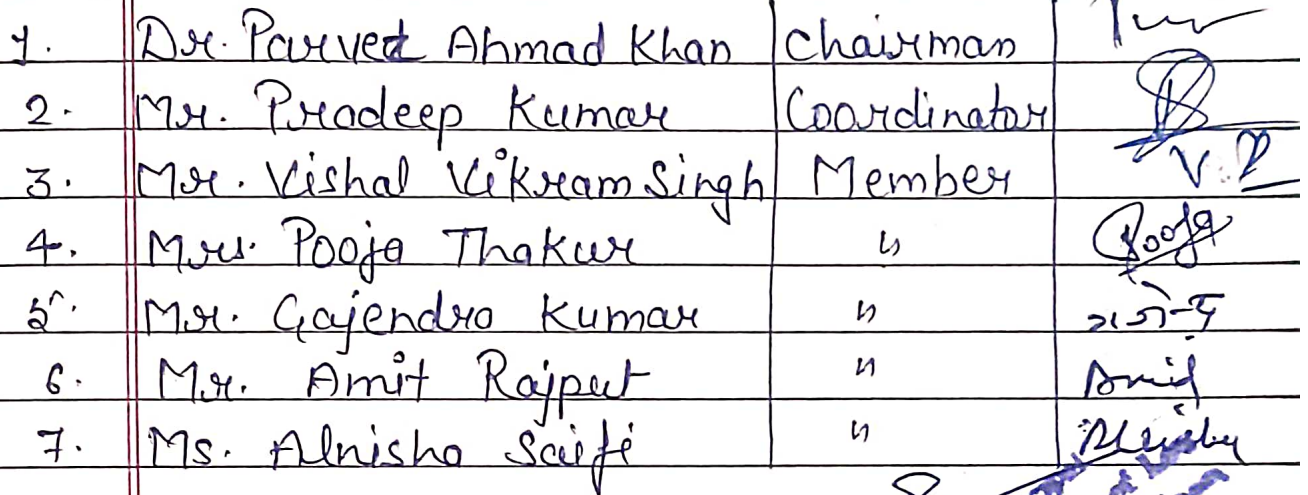 1. Dr. Parved Ahmad Khan Chairman
2. Mr. Pradeep Kumar Coordinator
3. Mr. Vishal Vikram Singh Member V.
4. Mrs. Pooja Thakur " Pooja
5. Mr. Gajendra Kumar " गजेन्द्र
6. Mr. Amit Rajput " Amit
7. Ms. Alnisha Saifi "